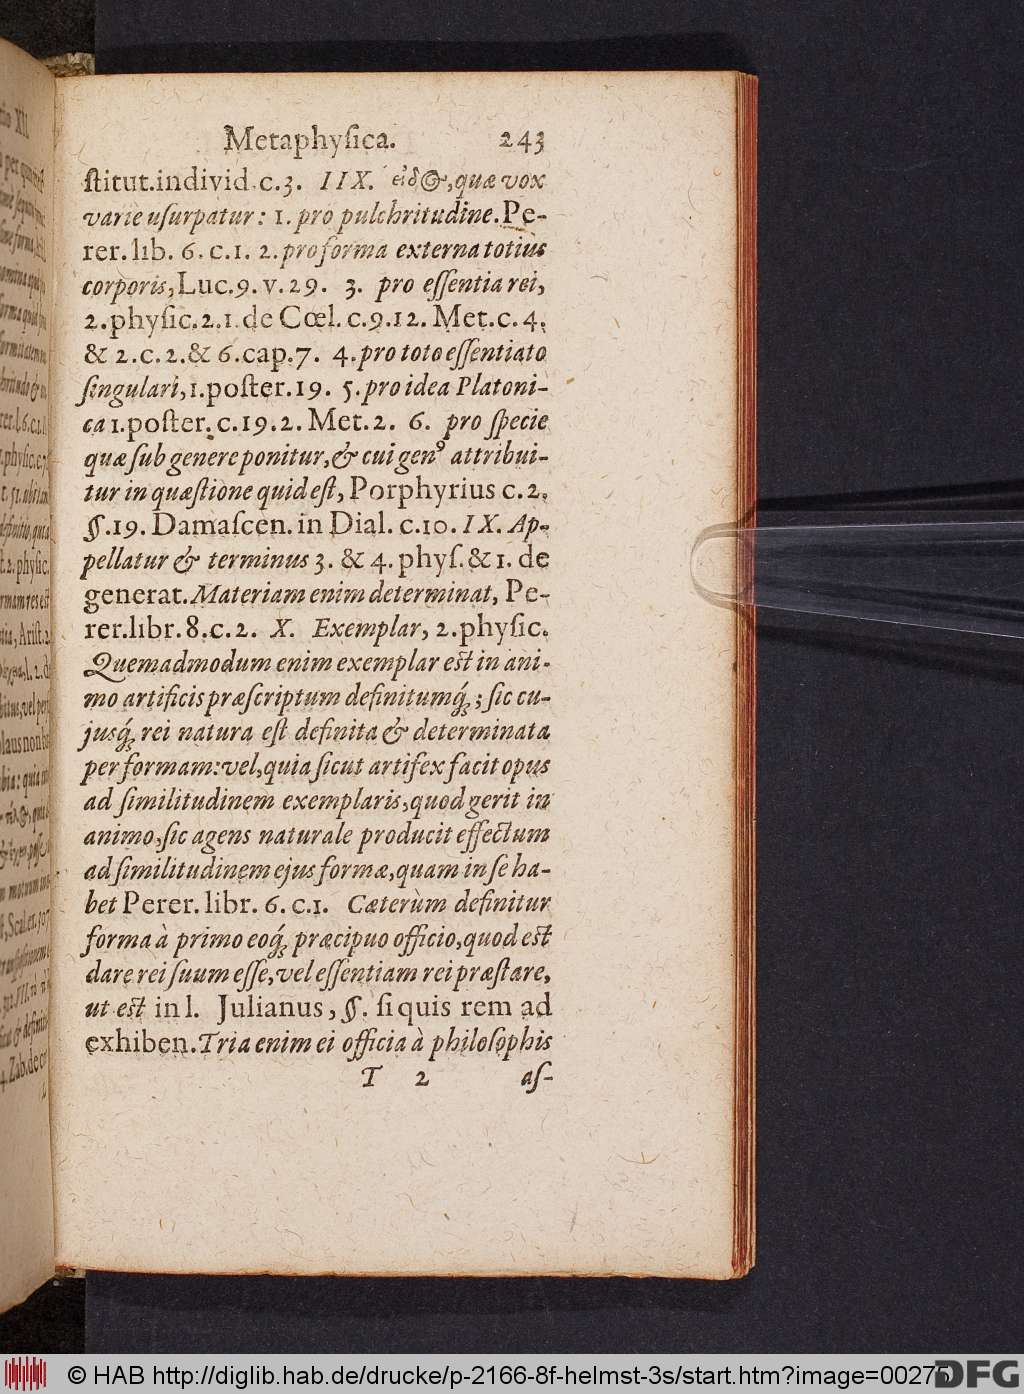 Metaphyſica. 243
ſtitut.individ.c.3. IIX. εἶδος, quæ vox
varie uſurpatur: 1. pro pulchritudine. Pe-
rer. lib. 6. c. 1. 2. pro forma externa totius
corporis, Luc. 9. v. 29. 3. pro eſſentia rei,
2. phyſic. 2. 1. de Cœl. c. 9. 12. Met. c. 4.
& 2. c. 2. & 6. cap. 7. 4. pro toto eſſentiato
ſingulari, 1. poſter. 19. 5. pro idea Platoni-
ca 1. poſter. c. 19. 2. Met. 2. 6. pro ſpecie
quæ ſub genere ponitur, & cui genꝰ attribui-
tur in quæſtione quid eſt, Porphyrius c. 2.
§. 19. Damaſcen. in Dial. c. 10. IX. Ap-
pellatur & terminus 3. & 4. phyſ. & 1. de
generat. Materiam enim determinat, Pe-
rer. libr. 8. c. 2. X. Exemplar, 2. phyſic.
Quemadmodum enim exemplar eſt in ani-
mo artificis præſcriptum definitumq́ꝫ; ſic cu-
jusq́ꝫ rei natura eſt definita & determinata
per formam: vel, quia ſicut artifex facit opus
ad ſimilitudinem exemplaris, quod gerit in
animo, ſic agens naturale producit effectum
ad ſimilitudinem ejus formæ, quam in ſe ha-
bet Perer. libr. 6. c. 1. Cæterùm definitur
forma à primo eoq́ꝫ præcipuo officio, quod eſt
dare rei ſuum eſſe, vel eſſentiam rei præſtare,
ut eſt in l. Julianus, §. ſi quis rem ad
exhiben. Tria enim ei officia à philoſophis
T 2 aſ-
© HAB http://diglib.hab.de/drucke/p-2166-8f-helmst-3s/start.htm?image=00275
DFG